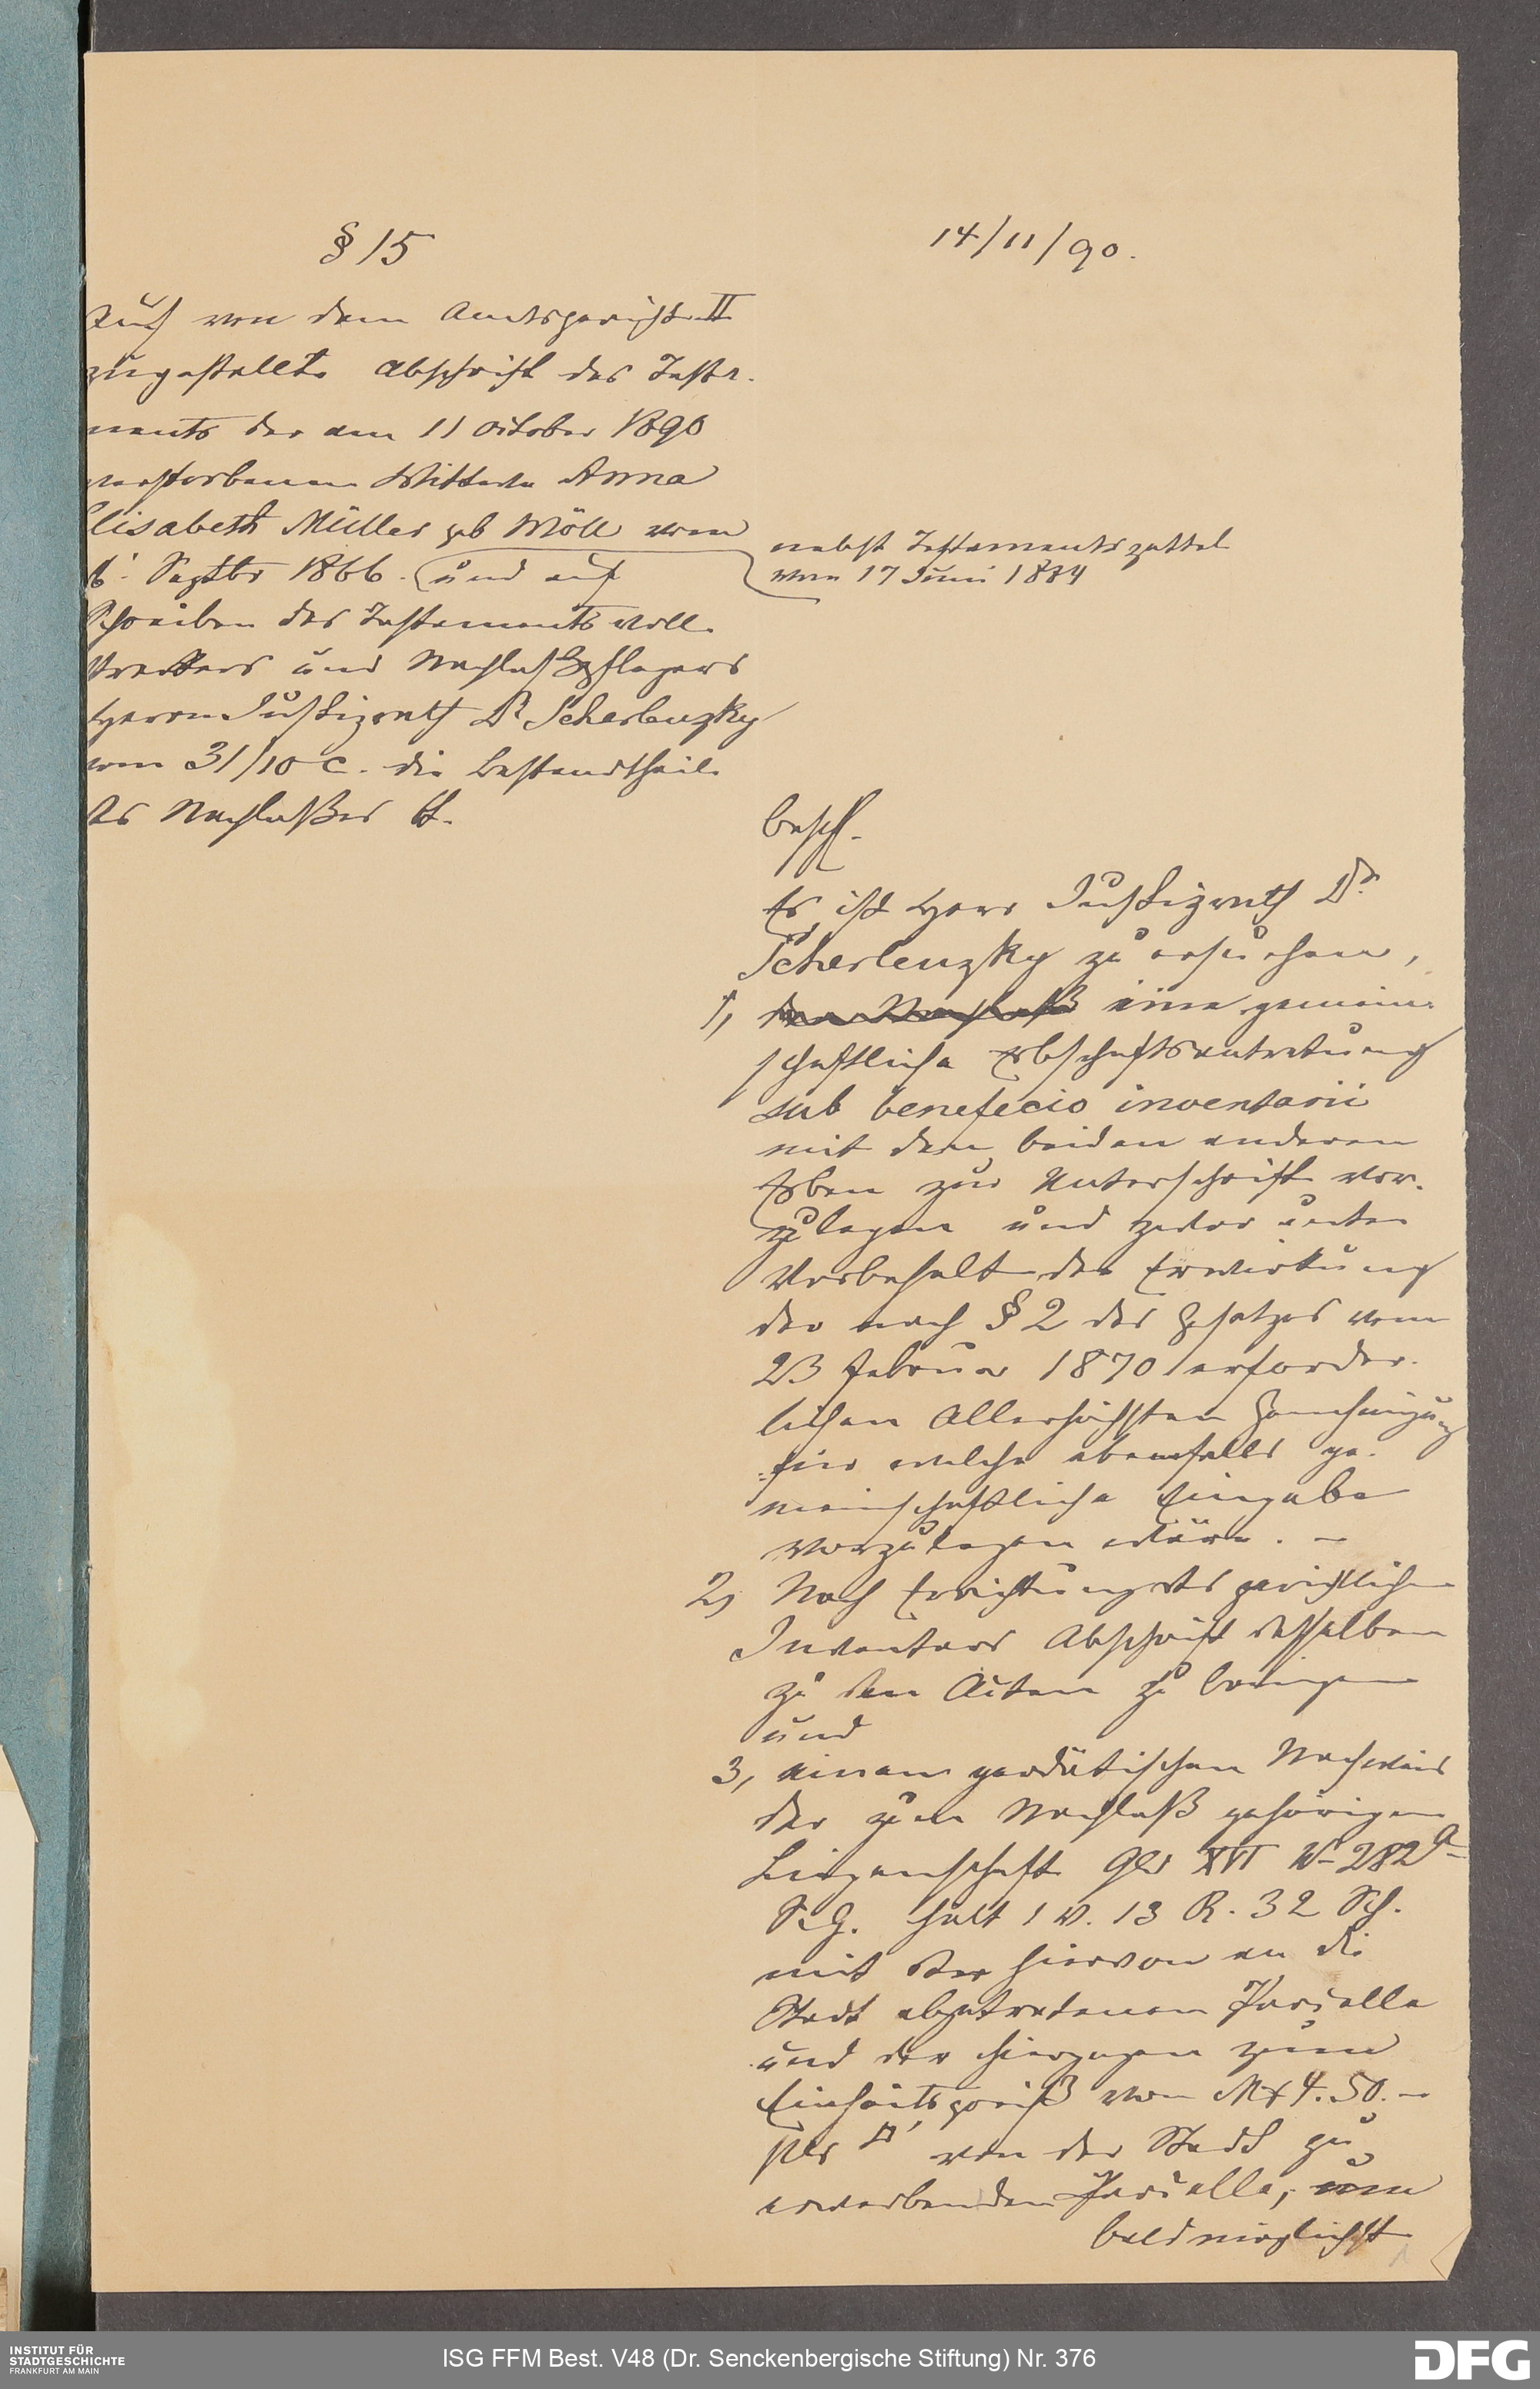 § 15
14/11/90.
Auf von dem Amtsgericht II
zugestellte Abschrift des Testa-
ments der am 11 October 1890
verstorbenen Wittwe Anna
Elisabeth Müller geb Möll vom
6. Septbr 1866. und auf
nebst Testamentszettel
vom 17 Juni 1884
Schreiben des Testamentsvoll-
streckers und Nachlaßpflegers
Herrn Justizrath Dr Scherlenzky
vom 31/10 c. die Bestandtheile
des Nachlaßes bt.
beschl.
Es ist Herr Justizrath Dr
Scherlenzky zu ersuchen,
1, den Nachlaß eine gemein-
schaftliche Erbschaftsantretung
sub benefecio inventarii
mit den beiden anderen
Erben zur Unterschrift vor-
zulegen und zwar unter
Vorbehalt der Erwirkung
der nach § 2 des Gesetzes vom
23 Februar 1870 erforder-
lichen Allerhöchsten Genehmigung
für welche ebenfalls ge-
meinschaftliche Eingabe
vorzulegen wäre. —
2, Nach Errichtung des gerichtlichen
Inventars Abschrift desselben
zu den Acten zu bringen
und
3, einen geodätischen Nachweis
der zum Nachlaß gehörigen
Liegenschaft Gew XVI No 282a
S.G. hält 1 V. 13 R. 32 Sch.
mit der hiervon an die
Stadt abgetretenen Parcelle
und der hiergegen zum
Einheitspreiß von Mk 4.50.—
per □' von der Stadt zu
erwerbenden Parcelle, um
baldmöglichst
INSTITUT FÜR
STADTGESCHICHTE
FRANKFURT AM MAIN
ISG FFM Best. V48 (Dr. Senckenbergische Stiftung) Nr. 376
DFG